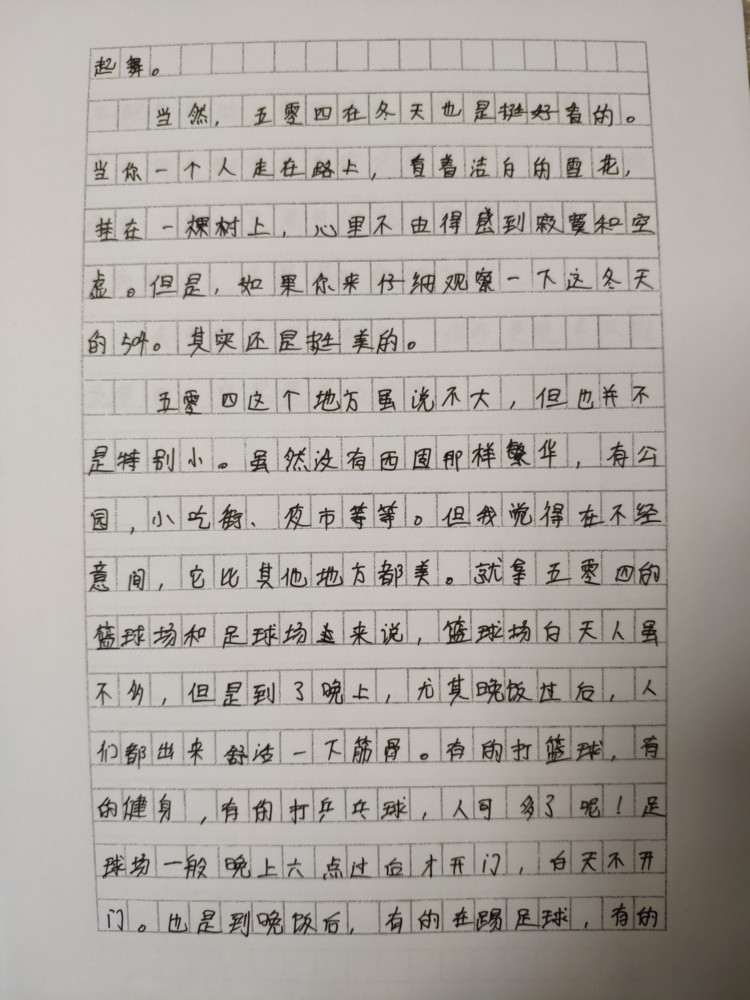 起舞。
当然，五零四在冬天也是挺好看的。
当你一个人走在路上，看着洁白的雪花，
挂在一棵树上，心里不由得感到寂寞和空
虚。但是，如果你来仔细观察一下这冬天
的504。其实还是挺美的。
五零四这个地方虽说不大，但也并不
是特别小。虽然没有西固那样繁华，有公
园，小吃街、夜市等等。但我觉得在不经
意间，它比其他地方都美。就拿五零四的
篮球场和足球场来说，篮球场白天人虽
不多，但是到了晚上，尤其晚饭过后，人
们都出来舒活一下筋骨。有的打篮球，有
的健身，有的打乒乓球，人可多了呢！足
球场一般晚上六点过后才开门，白天不开
门。也是到晚饭后，有的在踢足球，有的